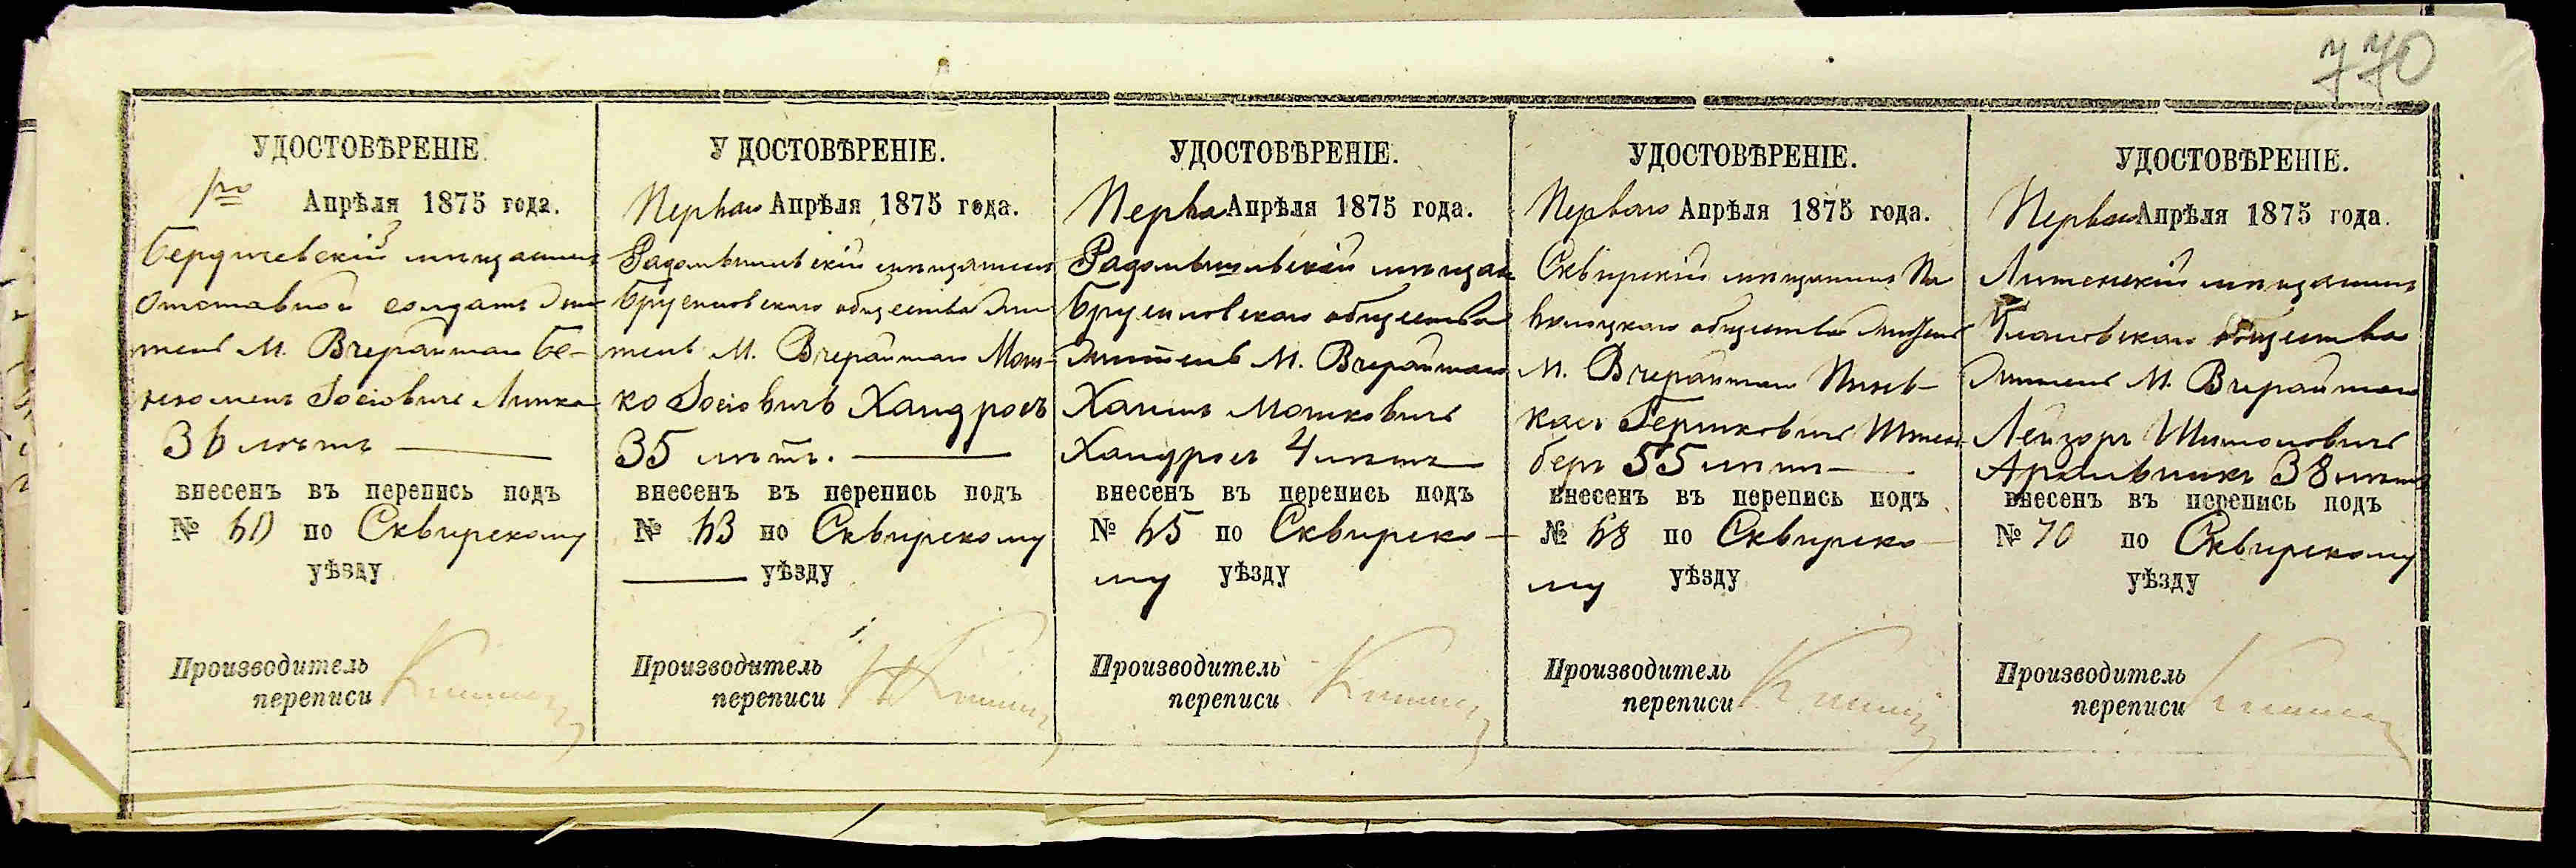 770
УДОСТОВѢРЕНІЕ.
1го Апрѣля 1875 года.
Бердичевскій мѣщанинъ
отставной солдатъ жи-
тель М. Вчерайшаго Бе-
Іосіовичъ
36 лѣтъ
внесенъ въ перепись подъ
№ 60 по Сквирскому
уѣзду
Производитель
переписи
УДОСТОВѢРЕНІЕ.
Перваго Апрѣля 1875 года.
Радомысльскій мѣщанинъ
Брусиловскаго общества жи-
тель М. Вчерайшаго Мош-
ко Іосіовичъ Хандросъ
35 лѣтъ.
внесенъ въ перепись подъ
№ 63 по Сквирскому
уѣзду
Производитель
переписи
УДОСТОВѢРЕНІЕ.
Перваго Апрѣля 1875 года.
Радомысльскій мѣщан
Брусиловскаго общества
житель М. Вчерайшаго
Хаимъ Мошковичъ
Хандросъ 4 лѣтъ
внесенъ въ перепись подъ
№ 65 по Сквирско-
му уѣзду
Производитель
переписи
УДОСТОВѢРЕНІЕ.
Перваго Апрѣля 1875 года.
Сквирскій мѣщанинъ Па
волоцкаго общества житель
М. Вчерайшаго Пинь-
кас Гершковичъ Штейн-
берг 55 лѣтъ
внесенъ въ перепись подъ
№ 68 по Сквирско-
му уѣзду
Производитель
переписи
УДОСТОВѢРЕНІЕ.
Перваго Апрѣля 1875 года.
Литенскій мѣщанинъ
общества
житель М. Вчерайшаго
Лейзоръ Шимоновичъ
38 лѣтъ
внесенъ въ перепись подъ
№ 70 по Сквирскому
уѣзду
Производитель
переписи